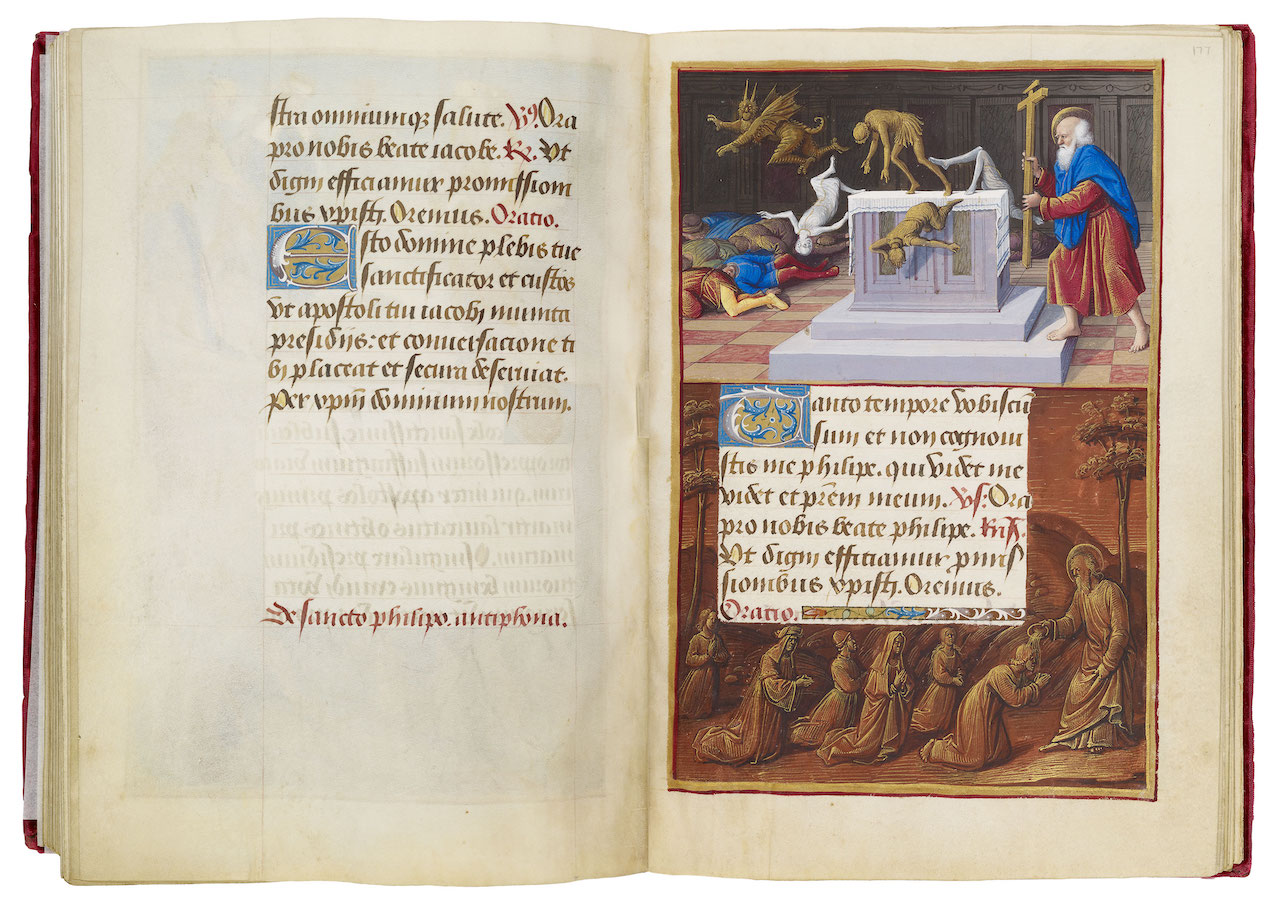 stra omniumq; salute. V9. Ora
pro nobis beate iacobe. R. Vt
digni efficiamur promission
bus xpisti. Oremus. Oratio.
Esto domine plebis tue
sanctificator et custos
vt apostoli tui iacobi munita
presidijs: et conuersacione ti
bi placeat et secura deseruiat.
Per xpm̃ dominum nostrum.
De sancto philipo. antiphona.
177
Tanto tempore vobiscũ
sum et non cognoui
stis me philipe. qui videt me
videt et prẽm meum. Vs: Ora
pro nobis beate philipe.
Vt digni efficiamur pmis
sionibus xpisti. Oremus.
Oratio.